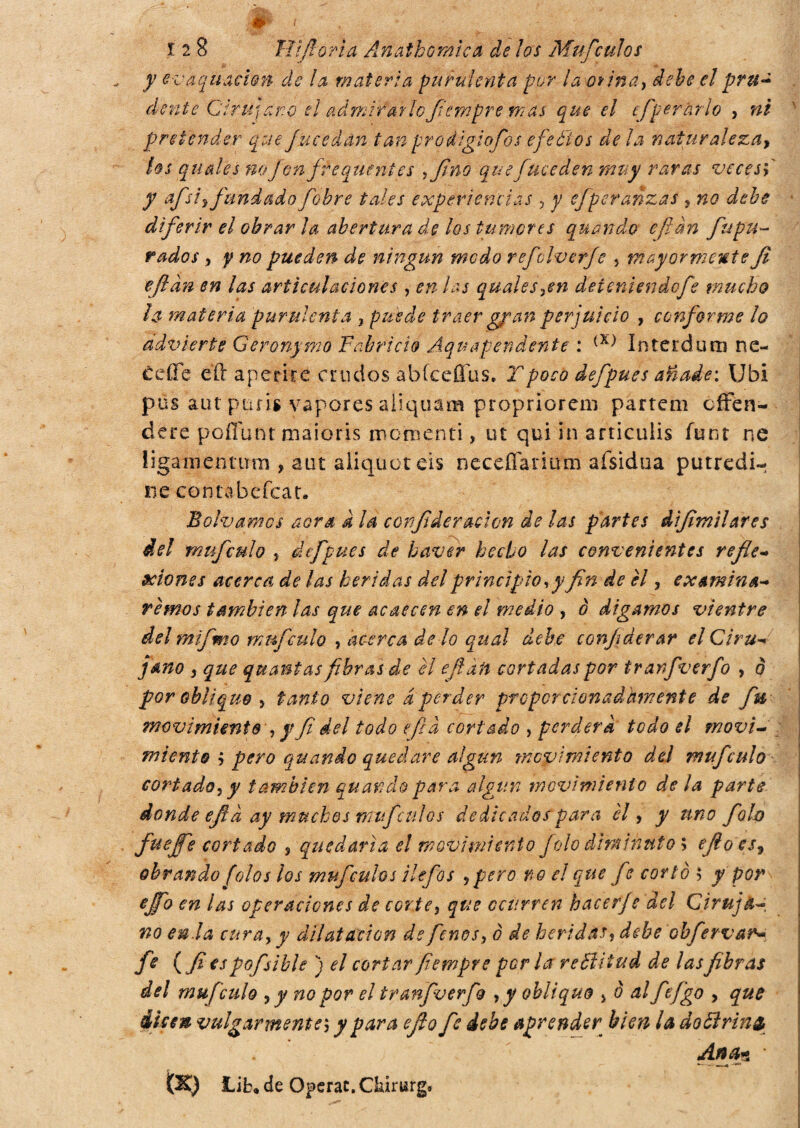 128 Historia Anathomica de los Musculos
y evaquacion de la materia purulenta por la orina, debe el pru-
dente Cirujano el admirarlo siempre mas que el esperarlo , ni
pretender que sucedan tan prodigiosos efectos de la naturaleza,
los quales no son frequentes , sino que suceden muy raras veces;
y assi, fundado sobre tales experiencias , y esperanzas , no debe
diferir el obrar la abertura de los tumores quando están supu-
rados , y no pueden de ningun modo resolverse , mayormente si
están en las articulaciones , en las quales, en deteniendose mucho
la materia purulenta , puede traer gran perjuicio , conforme lo
advierte Geronymo Fabricio Aquapendente : (X) Interdum ne-
cesse est aperire crudos abscessus. Y poco despues añade: Ubi
pus aut puris vapores aliquam propriorem partem offen-
dere possunt maioris momenti , ut qui in articulis sunt ne
ligamentum , aut aliquot eis necessarium afsidua putredi-
ne contabescat.
Bolvamos aora à la consideracion de las partes disimilares
del musculo , despues de haver hecho las convenientes refle-
xiones acerca de las heridas del principio, y fin de èl , examina-
rèmos tambien las que acaecen en el medio , ò digamos vientre
del mismo musculo , acerca de lo qual debe considerar el Ciru-
jano , que quantas fibras de èl están cortadas por transverso , ò
por obliquo , tanto viene à perder proporcionadamente de su
movimiento , y si del todo està cortado , perderà todo el movi-
miento ; pero quando quedare algun movimiento del musculo
cortado, y tambien quando para algun movimiento de la parte
donde està ay muchos musculos dedicados para èl , y uno solo
fuesse cortado , quedaria el movimiento solo diminuto ; esto es,
obrando solos los musculos ilesos , pero no el que se cortò ; y por
esso en las operaciones de corte, que ocurren hacerse del Ciruja-
no en la cura, y dilatacion de senos, ò de heridas, debe observar-
se ( si es possible ) el cortar siempre por la rectitud de las fibras
del musculo , y no por el transverso , y obliquo , ò al sesgo , que
dicen vulgarmente; y para esto se debe aprender bien la doctrina
Ana-
(X) Lib. de Operat. Chirurg.